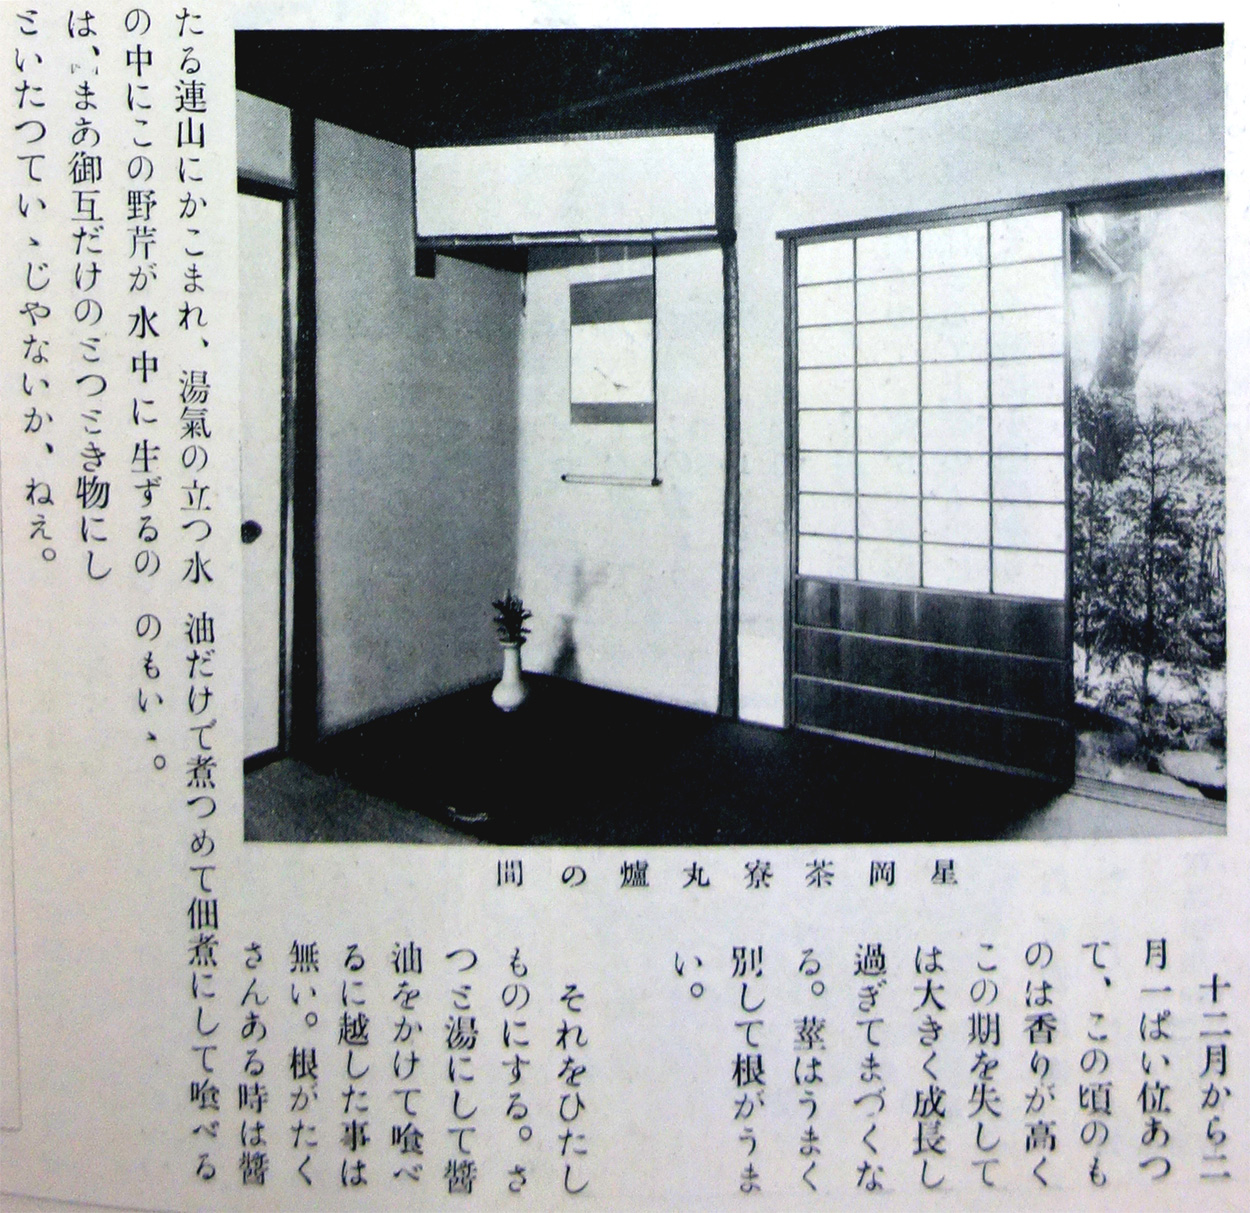 たる連山にかこまれ、湯氣の立つ水
の中にこの野芹が水中に生ずるの
は、まあ御互だけのとつとき物にし
といたつていゝじやないか、ねえ。
星岡茶寮丸爐の間
十二月から二
月一ぱい位あつ
て、この頃のも
のは香りが高く
この期を失して
は大きく成長し
過ぎてまづくな
る。莖はうまく
別して根がうま
い。
それをひたし
ものにする。さ
つと湯にして醬
油をかけて喰べ
るに越した事は
無い。根がたく
さんある時は醬
油だけで煮つめて佃煮にして喰べる
のもいゝ。